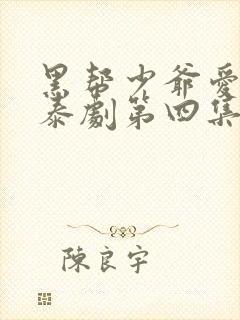 黑帮少爷爱
泰劇第四集
陳良宇